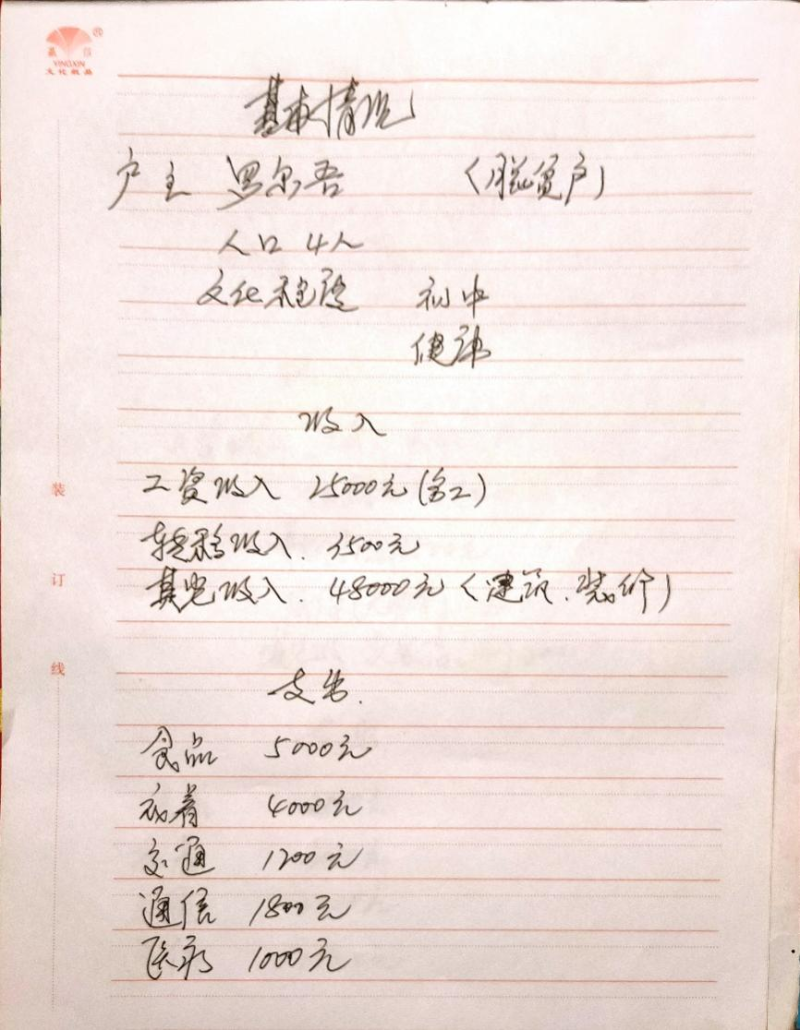 YINGXIN
文化纸品
基本情况
户主 罗尔吾 （脱贫户）
人口 4人
文化程度 初中
健康
收入
工资收入 25000元（务工）
转移收入. 3500元
其它收入. 48000元（建筑.装修）
支出.
食品 5000元
衣着 4000元
交通 1200元
通信 1800元
医疗 1000元
装
订
线